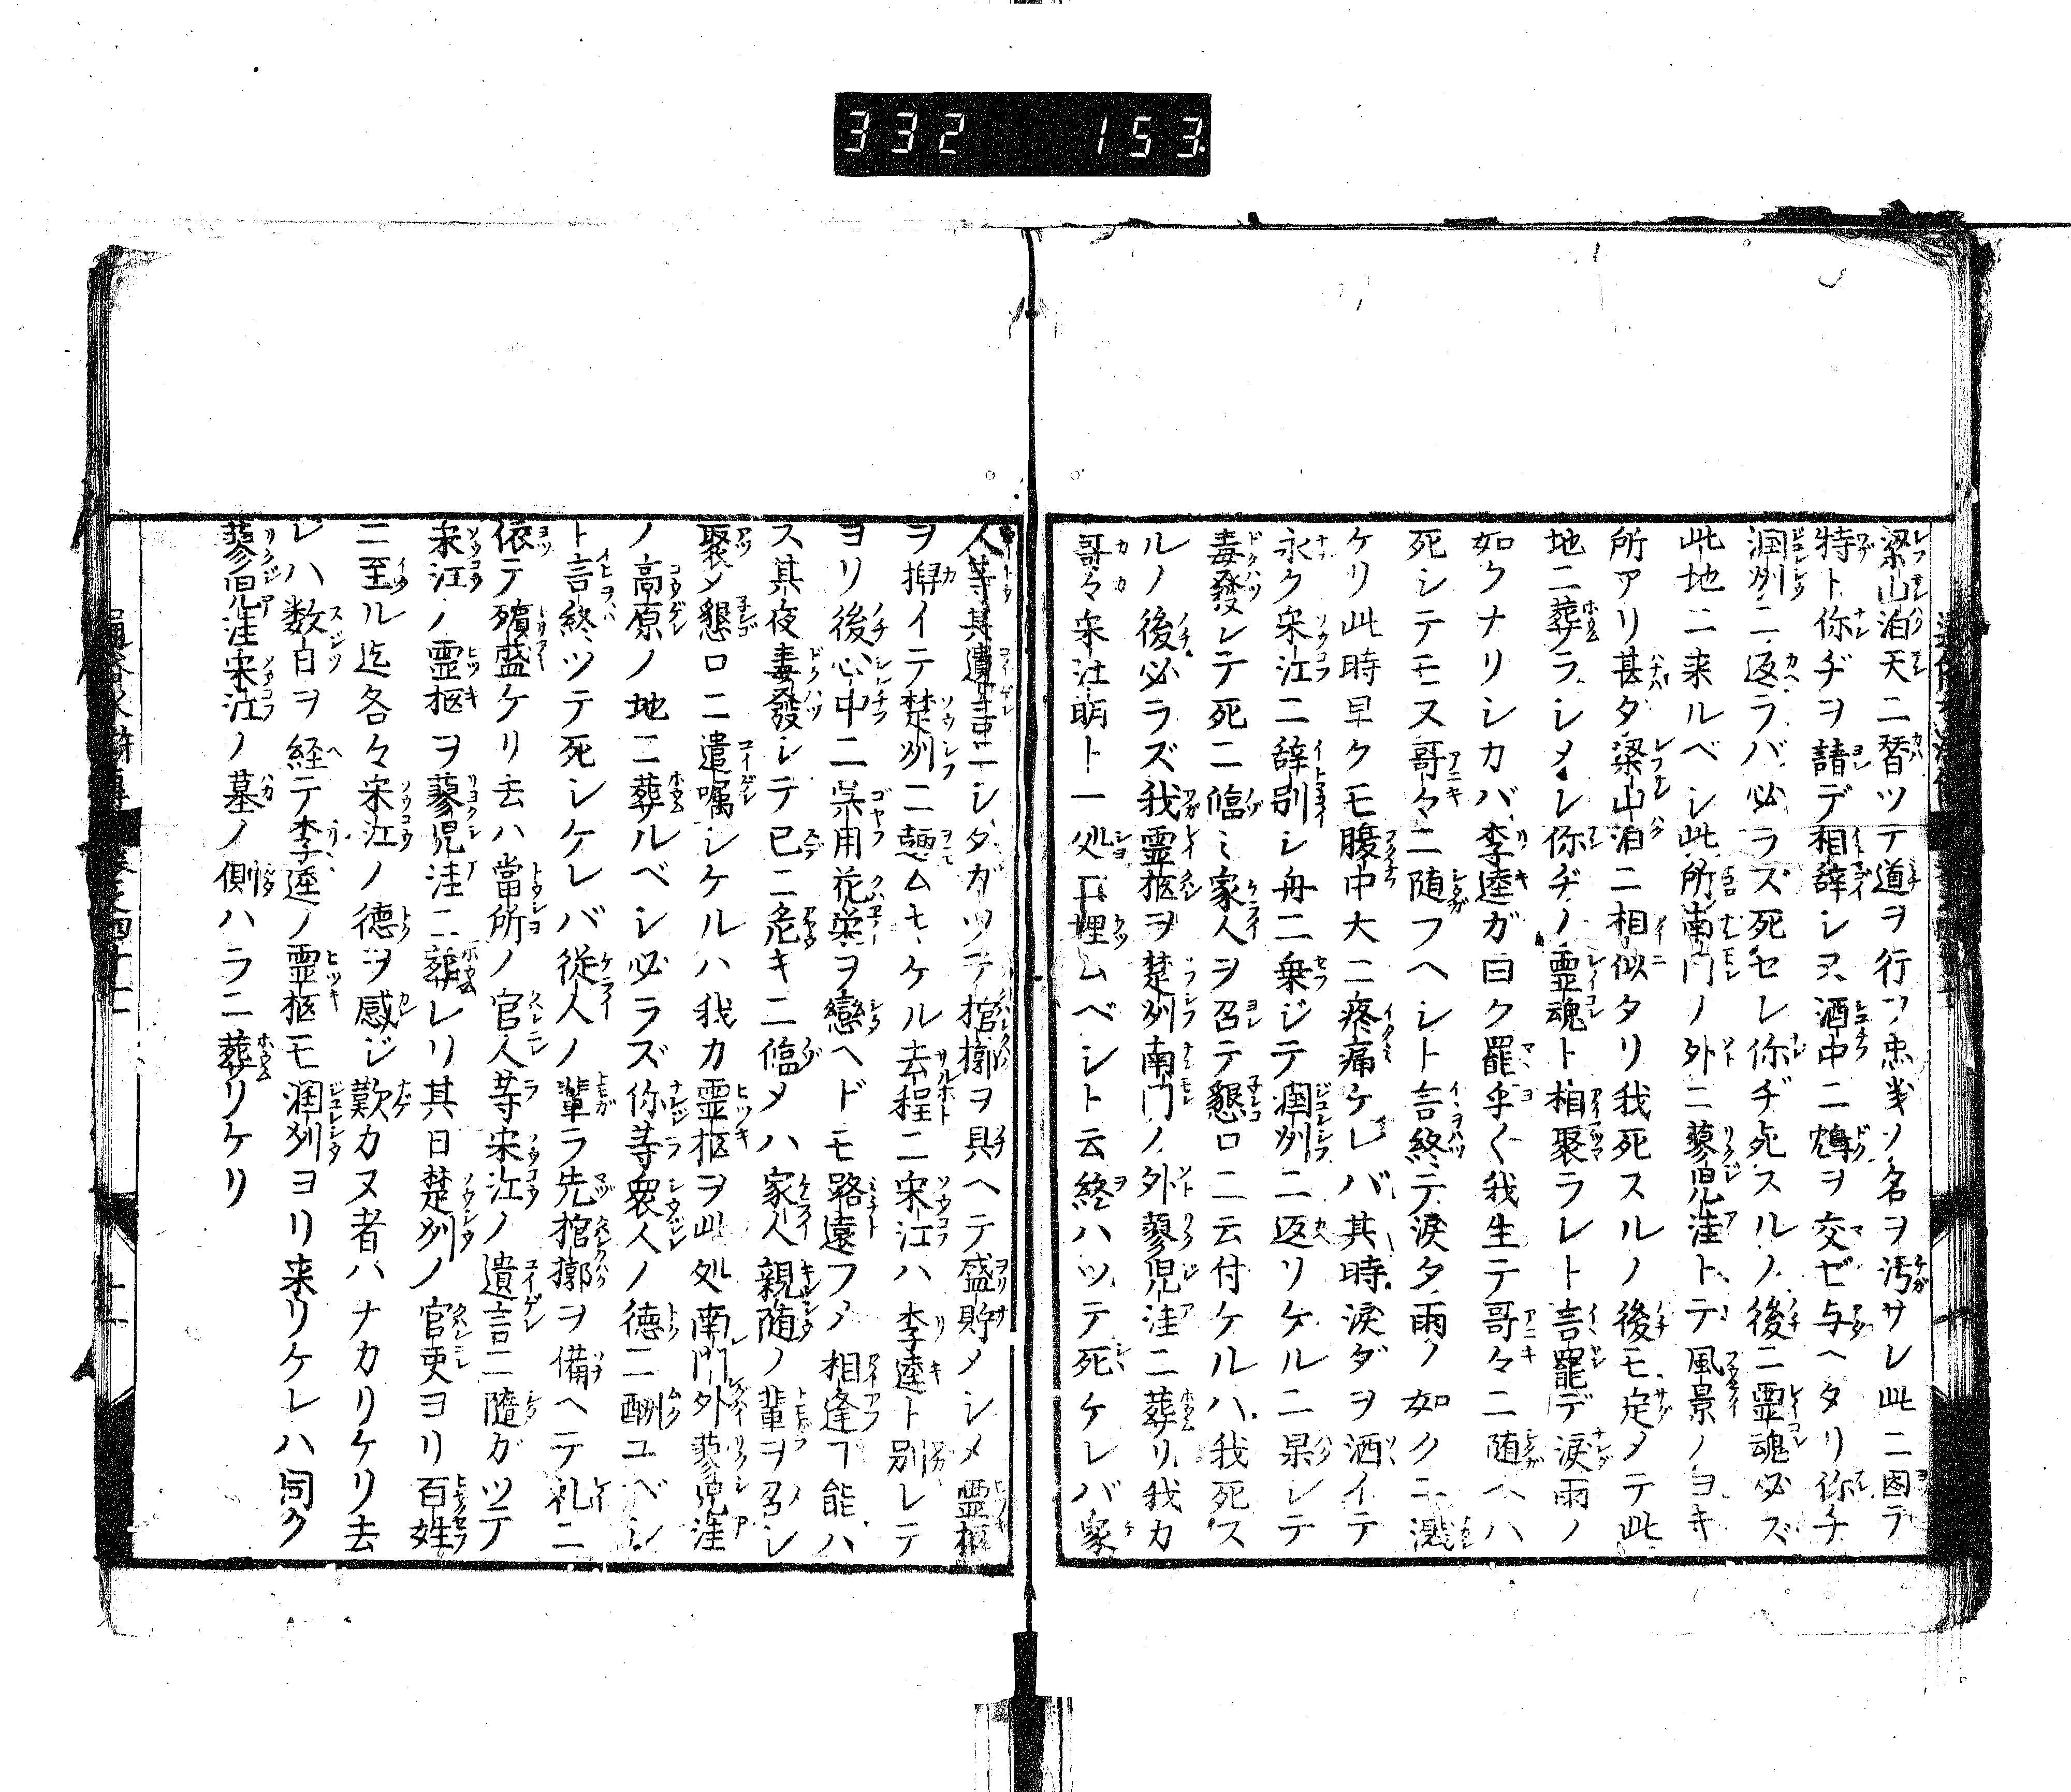 332 153
梁山泊天ニ替ツテ道ヲ行フ忠義ノ名ヲ汚サレ此ニ因テ
特ト你ヂヲ請デ相辞シヌ酒中ニ鴆ヲ交ゼ与ヘタリ你チ
潤州ニ返ラバ必ラズ死セレ你ヂ死スルノ後ニ霊魂必ズ
此地ニ来ルベシ此所南門ノ外ニ蓼児洼トテ風景ノヨキ
所アリ甚タ梁山泊ニ相似タリ我死スルノ後モ定メテ此
地ニ葬ラシメレ你ヂノ霊魂ト相聚ラレト言罷デ涙雨ノ
如クナリシカバ李逵ガ曰ク罷乎〱我生テ哥々ニ随ヘハ
死シテモ又哥々ニ随フヘシト言終テ涙タ雨ノ如クニ
ケリ此時早クモ腹中大ニ疼痛ケレバ其時涙ダヲ洒イテ
永ク宋江ニ辞別シ舟ニ乗ジテ潤州ニ返リケルニ果レテ
毒發レテ死ニ臨ミ家人ヲ召テ懇ロニ云付ケルハ我死ス
ルノ後必ラズ我霊柩ヲ楚州南門ノ外蓼児洼ニ葬リ我カ
哥々宋江明ト一処ニ埋ムベシト云終ハツテ死ケレバ家
人等其遺言ニシタガツテ棺槨ヲ具ヘテ盛貯メシメ霊柩
ヲ舁イテ楚州ニ赴ムキケル去程ニ宋江ハ李逵ト別レテ
ヨリ後心中ニ呉用花栄ヲ戀ヘドモ路遠フメ相逢フ能ハ
ス其夜毒發シテ已ニ危キニ臨メハ家人親随ノ輩ヲ召シ
聚メ懇ロニ遺嘱シケルハ我カ霊柩ヲ此処南門外蓼児洼
ノ高原ノ地ニ葬ルベシ必ラズ你等衆人ノ徳ニ酬ユベシ
ト言終ツテ死シケレバ従人ノ輩ラ先棺槨ヲ備ヘテ礼ニ
依テ殯盛ケリ去ハ當所ノ官人等宋江ノ遺言ニ隨ガツテ
宋江ノ霊柩ヲ蓼児洼ニ葬レリ其日楚州ノ官吏ヨリ百姓
ニ至ル迄各々宋江ノ徳ヲ感ジ歎カヌ者ハナカリケリ去
レハ数日ヲ経テ李逵ノ霊柩モ潤州ヨリ来リケレハ同ク
蓼児洼宋江ノ墓ノ側ハラニ葬リケリ